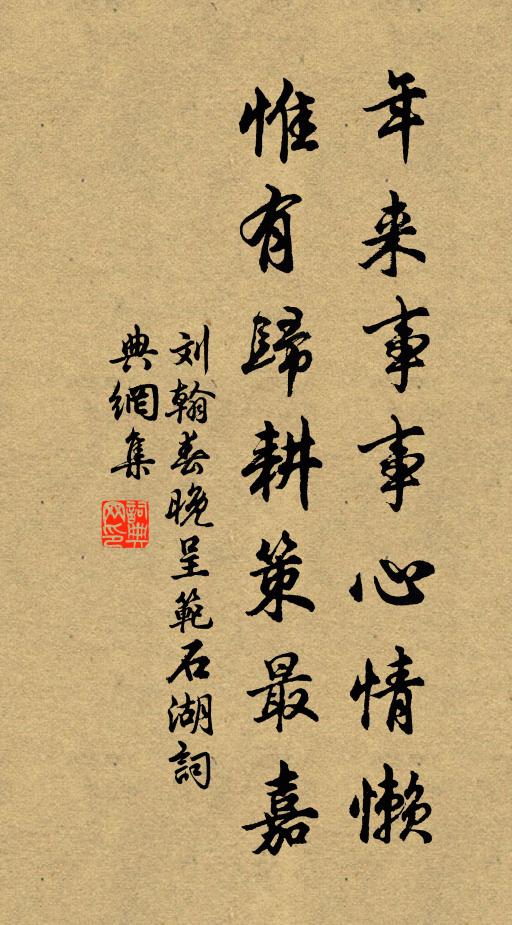 年来事事心情懒
惟有歸耕策最嘉
刘翰春晚呈範石湖詞
典網集
詞典网印